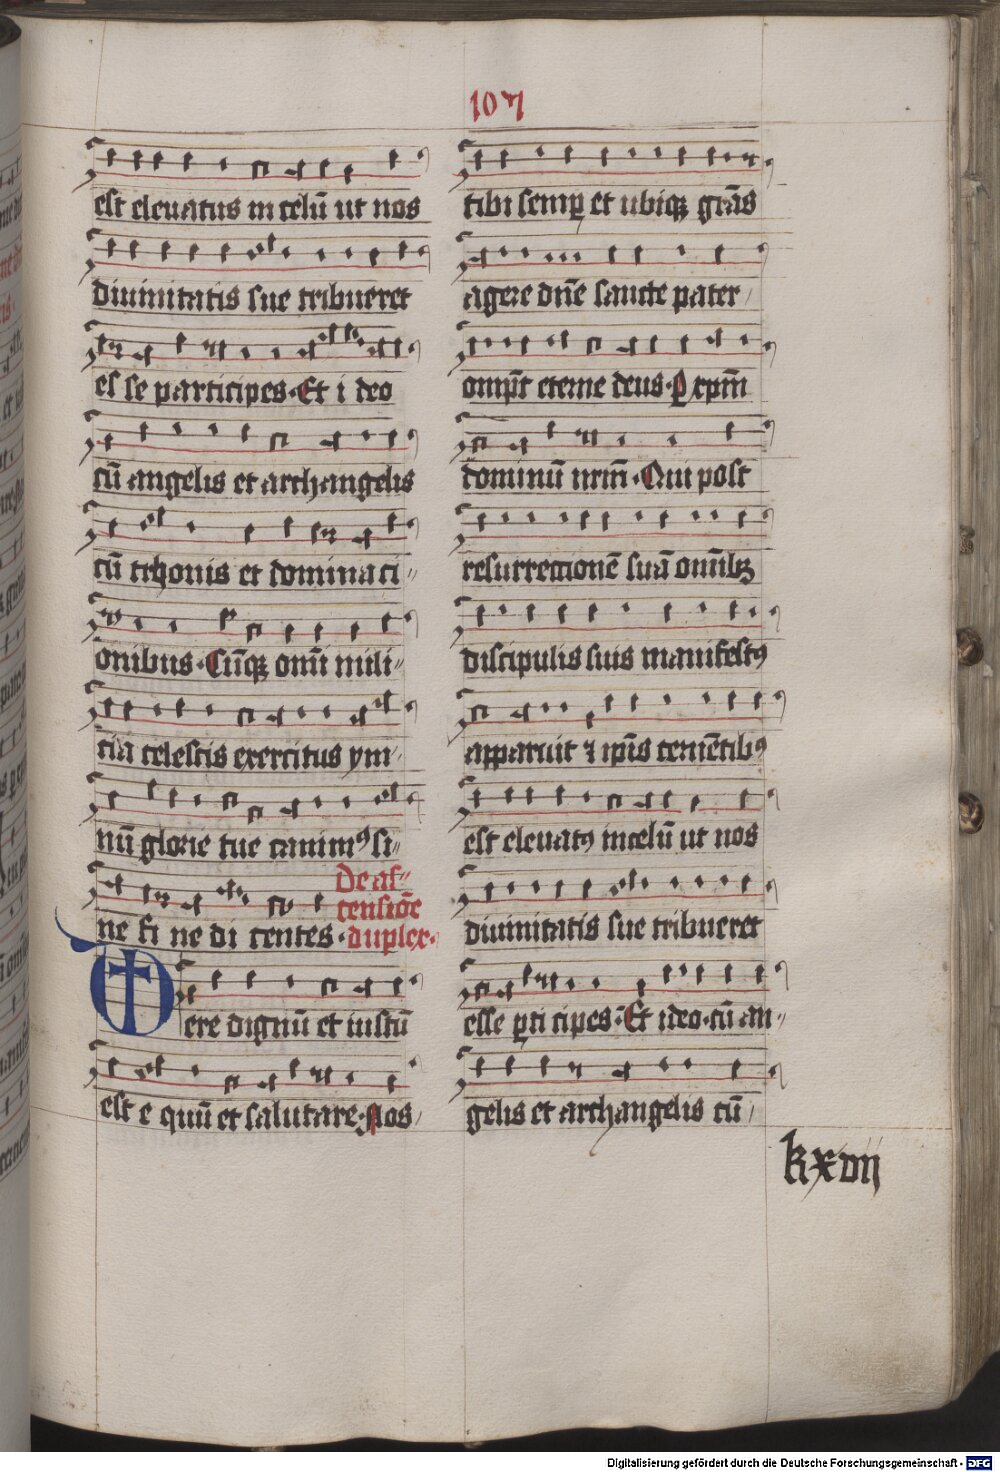 107
est eleuatus in celū ut nos
diuinitatis sue tribueret
es se participes · Et i deo
cū angelis et archangelis
cū trhonis et dominaci⸗
onibus · Cūqꝫ om̄i mili⸗
cia celestis exercitus ym⸗
nū glorie tue canimꝰ si⸗
De as⸗
censiōe
ne fi ne di centes · duplex ·
Uere dignū et iustū
est e quū et salutare · Nos
tibi semꝑ et ubiqꝫ grās
agere dn̄e sancte pater
omp̄t eterne deus · Ꝑ xpm̄
dominū nr̄m̄ · Qui post
resurrectionē suā omībꝫ
discipulis suis manifestꝰ
apparuit ⁊ ip̄is cernētibꝰ
est eleuatꝰ in celū ut nos
diuinitatis sue tribueret
esse ꝑti cipes · Et ideo · cū an⸗
gelis et archangelis cū
kxvij
Digitalisierung gefördert durch die Deutsche Forschungsgemeinschaft - DFG